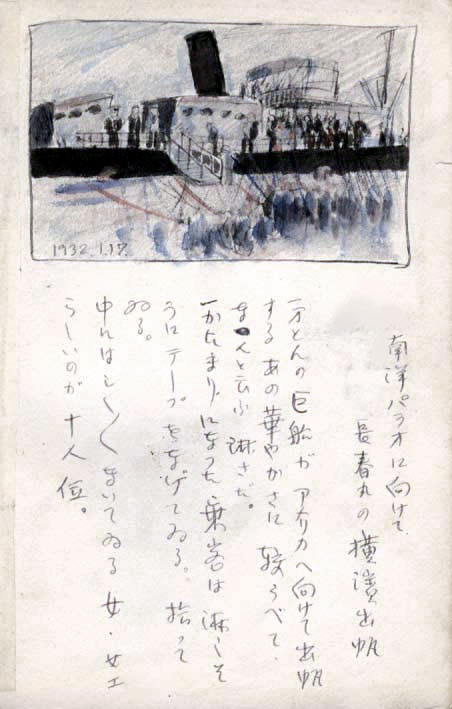 1932.1.17.
南洋パラオに向けて
長春丸の横濱出帆
一万とんの巨船がアメリカへ向けて出帆
するあの華やかさに較らべて、
なんと云ふ淋さだ。
一かたまりになった乗客は淋しそ
うにテープをなげてゐる。拾って
ゐる。
中にはしく〱ないてゐる女・女工
らしいのが十人位。